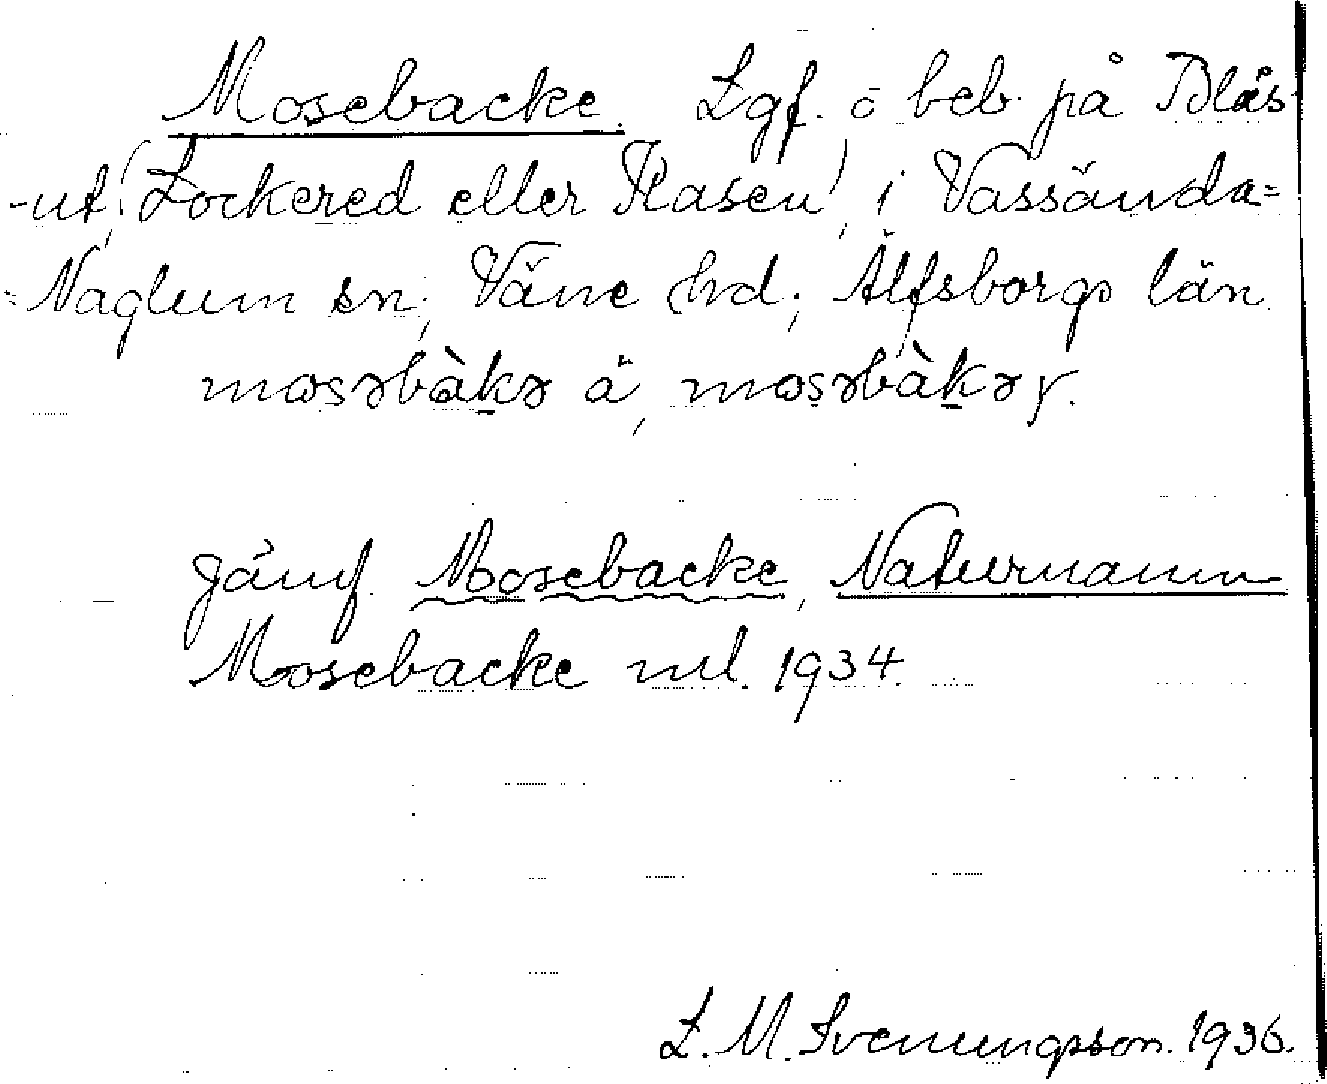 Mosebacke. Lgf. o beb. på Blås-
-ut, (Lockered eller Kasen), i Vassända-
-Naglum sn, Väne hd, Älfsborgs län.
mosəbàkə å, mosəbàkəɤ.
Jämf. Mosebacke, Naturnamn
Mosebacke ml. 1934.
L. M. Svenungsson. 1936.